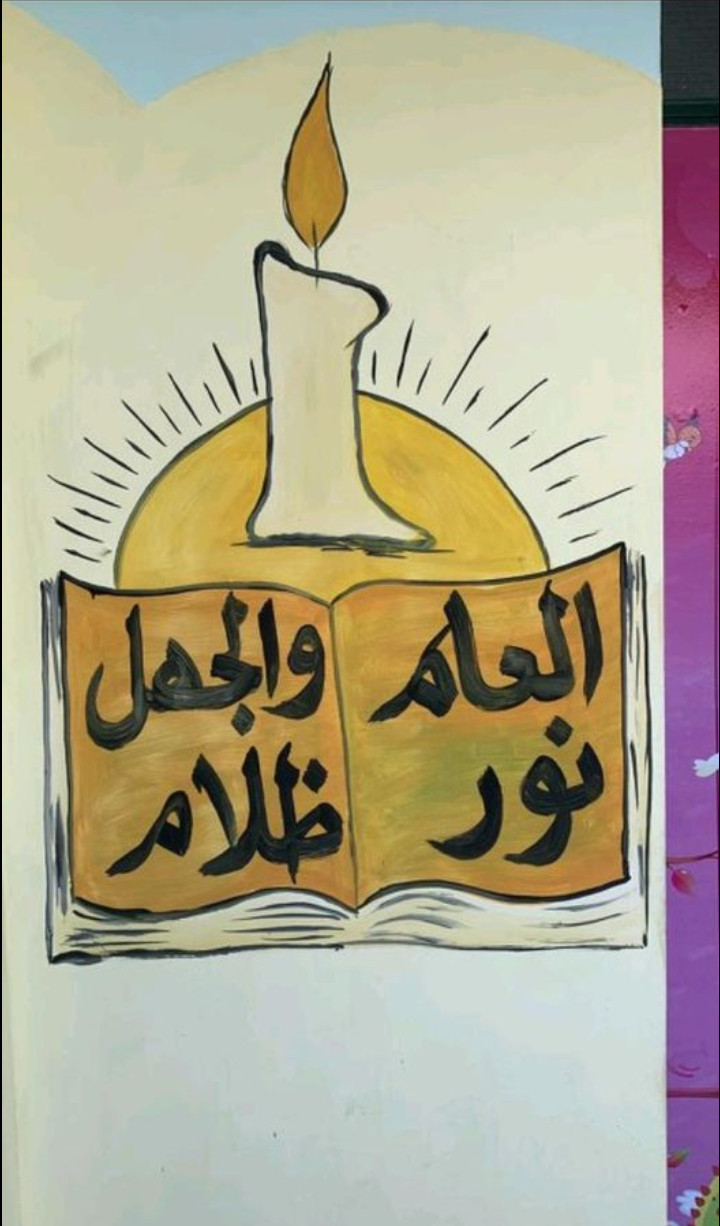 العلم
نور
والجهل
ظلام